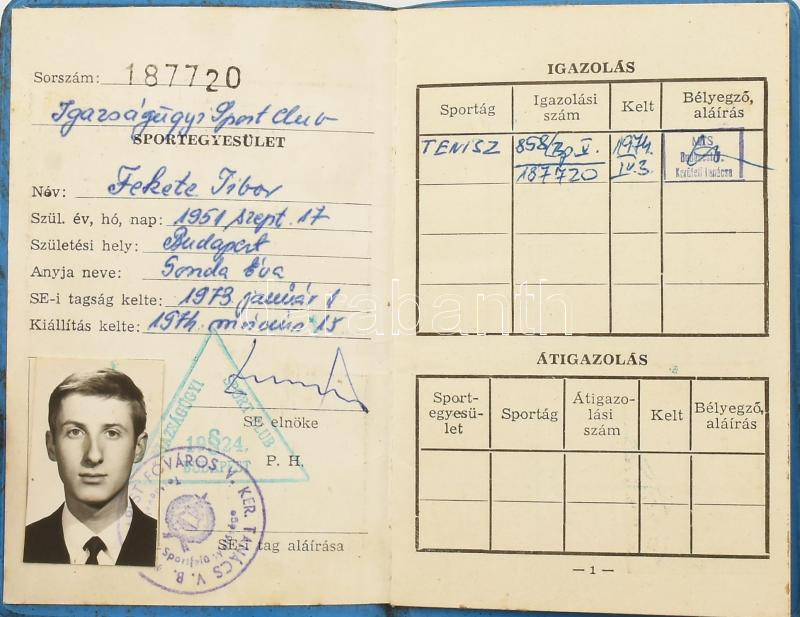 Sorszám: 187720
Igazságügyi Sport Club
SPORTEGYESÜLET
Név: Fekete Tibor
Szül. év, hó, nap: 1951 szept. 17
Születési hely: Budapest
Anyja neve: Gonda Éva
SE-i tagság kelte: 1973 január 1
Kiállítás kelte: 1974. március 15
IGAZSÁGÜGYI SPORT CLUB
1924.
BUDAPEST
SE elnöke
P. H.
FŐVÁROS V. KER. TANÁCS V. B.
SE-i tag aláírása
IGAZOLÁS
Sportág Igazolási szám Kelt Bélyegző, aláírás
TENISZ 858/Bp V. 1974.
187720 IV. 3.
MTS
Budapest
Kerületi Tanácsa
darabanth
ÁTIGAZOLÁS
Sport-
egyesü-
let
Sportág
Átigazo-
lási
szám
Kelt
Bélyegző,
aláírás
— 1 —